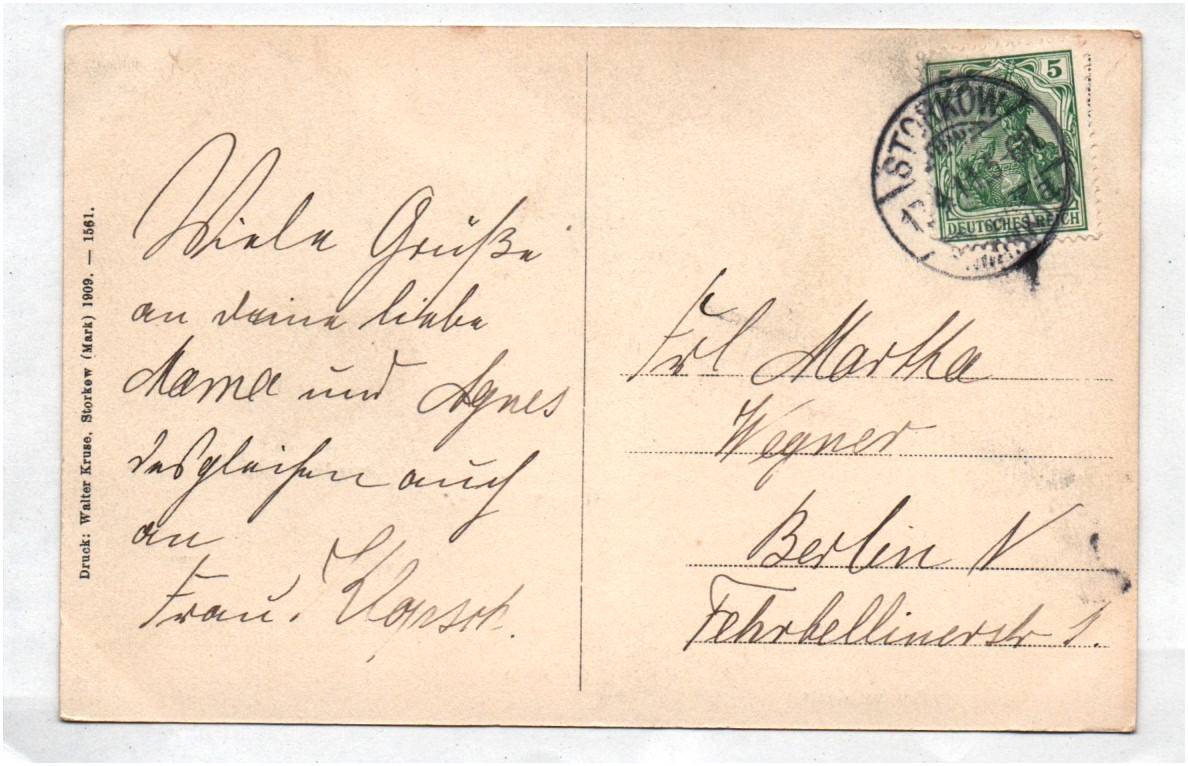 Druck: Walter Kruse, Storkow (Mark) 1909. — 1561.
Viele Grüße
an deine liebe
Mama und Agnes
desgleichen auch
an
Frau
5 5
DEUTSCHES REICH
STORKOW
Frl Martha
Wegner
Berlin N
Fehrbellinerstr 1.